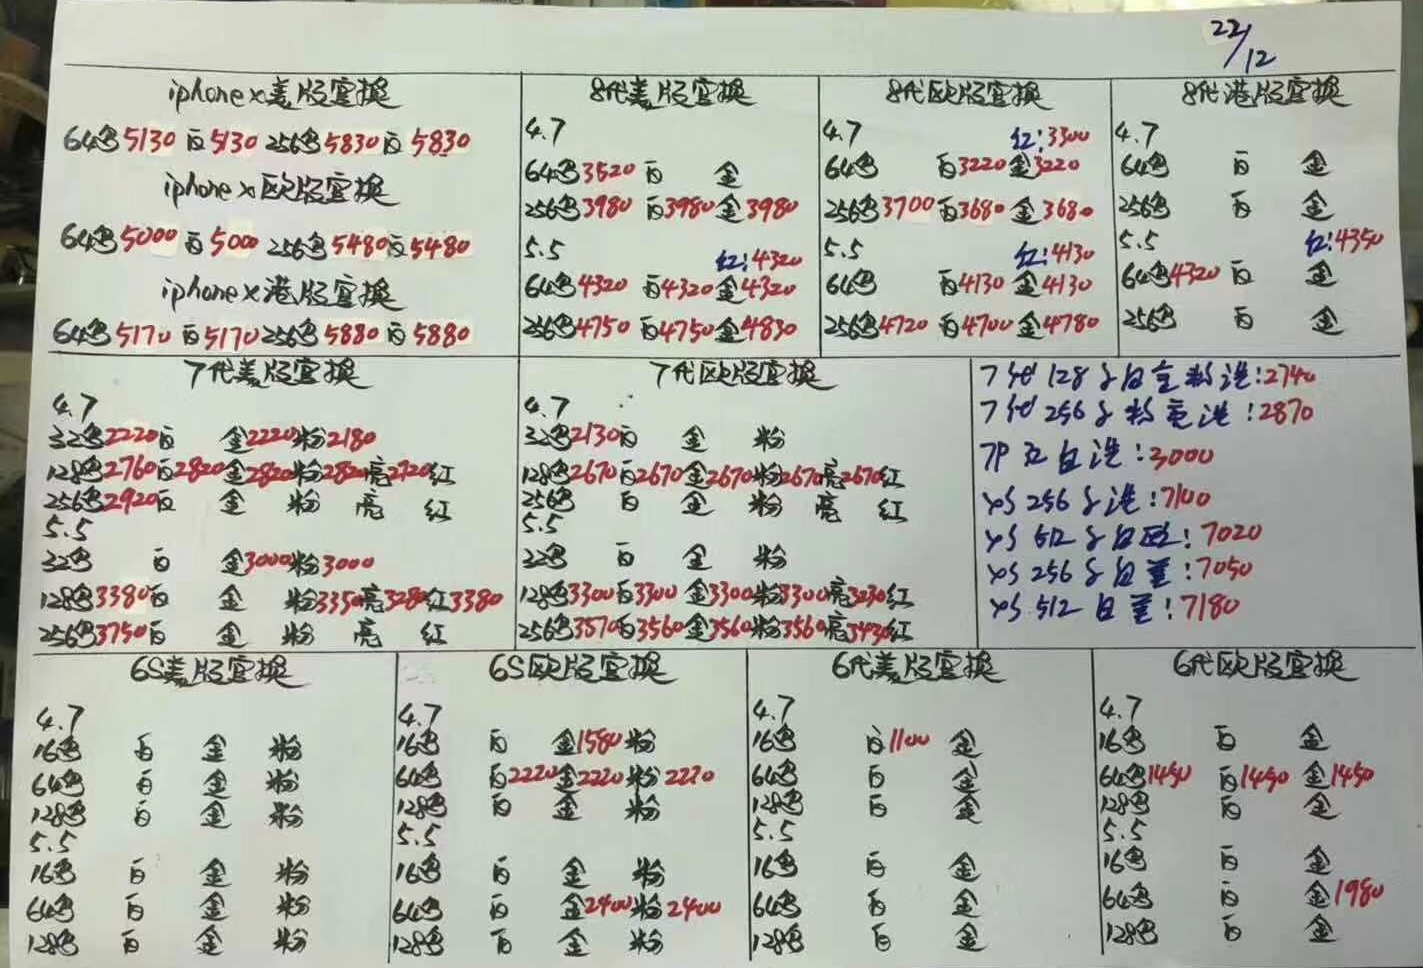 22/12
iphone x美版官换
64色5130 白5130 256色5830白5830
iphone x欧版官换
64色5000白5000 256色5480白5480
iphone x港版官换
64色5170白5170 256色5880白5880
8代美版官换
4.7
64色3520白 金
256色3980白3980金3980
5.5 红:4320
64色4320白4320金4320
256色4750白4750金4830
8代欧版官换
4.7 红:3300
64色 白3220金3220
256色3700白3680金3680
5.5 红:4130
64色 白4130金4130
256色4720白4700金4780
8代港版官换
4.7
64色 白 金
256色 白 金
5.5 红:4350
64色4320白 金
256色 白 金
7代美版官换
4.7
32色2220白 金2220粉2180
128色2760白2820金2820粉2820亮2720红
256色2920白 金 粉 亮 红
5.5
32色 白 金3000粉3000
128色3380白 金 粉3350亮3280红3380
256色3750白 金 粉 亮 红
7代欧版官换
4.7
32色2130白 金 粉
128色2670白2670金2670粉2670亮2670红
256色 白 金 粉 亮 红
5.5
32色 白 金 粉
128色3300白3300金3300粉3300亮3230红
256色3570白3560金3560粉3560亮3430红
7代128 白金粉港:2740
7代256 粉亮港:2870
7P 白港:3000
XS 256 港:7100
XS 512 白欧:7020
XS 256 白美:7050
XS 512 白美:7180
6S美版官换
4.7
16色 白 金 粉
64色 白 金 粉
128色 白 金 粉
5.5
16色 白 金 粉
64色 白 金 粉
128色 白 金 粉
6S欧版官换
4.7
16色 白 金1580粉
64色 白2220金2220粉2220
128色 白 金 粉
5.5
16色 白 金 粉
64色 白 金2400粉2400
128色 白 金 粉
6代美版官换
4.7
16色 白1100 金
64色 白 金
128色 白 金
5.5
16色 白 金
64色 白 金
128色 白 金
6代欧版官换
4.7
16色 白 金
64色1450 白1450金1450
128色 白 金
5.5
16色 白 金
64色 白 金1980
128色 白 金